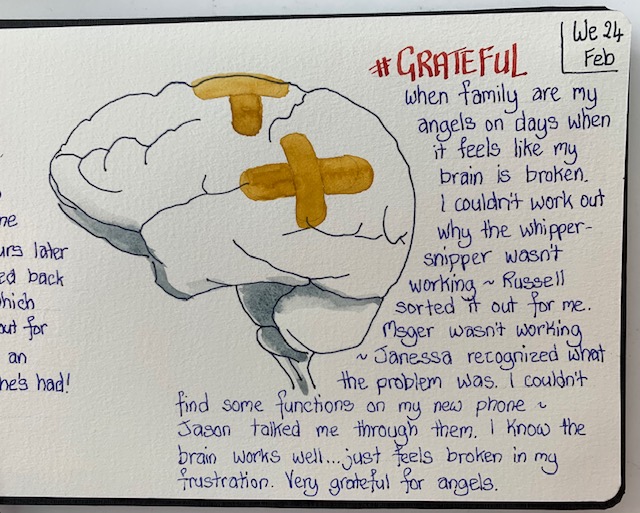 ne
urs later
ed back
hich
out for
an
he's had!
We 24
Feb
#GRATEFUL
when family are my
angels on days when
it feels like my
brain is broken.
I couldn't work out
why the whipper-
snipper wasn't
working ~ Russell
sorted it out for me.
Msger wasn't working
~ Janessa recognized what
the problem was. I couldn't
find some functions on my new phone ~
Jason talked me through them. I know the
brain works well...just feels broken in my
frustration. Very grateful for angels.